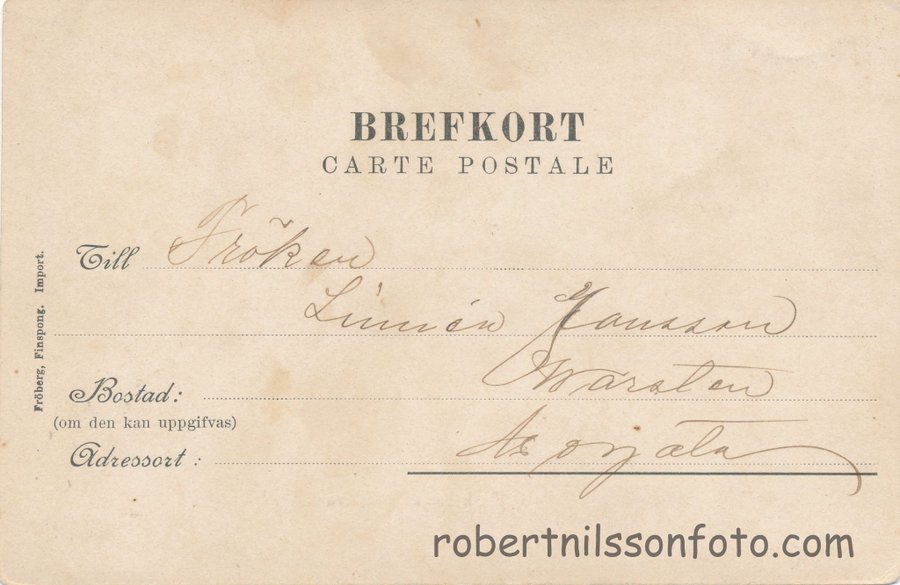 BREFKORT
CARTE POSTALE
Till Fröken
Linnéa Jansson
Bostad: Warsten
(om den kan uppgifvas)
Adressort :
Fröberg, Finspong. Import.
robertnilssonfoto.com